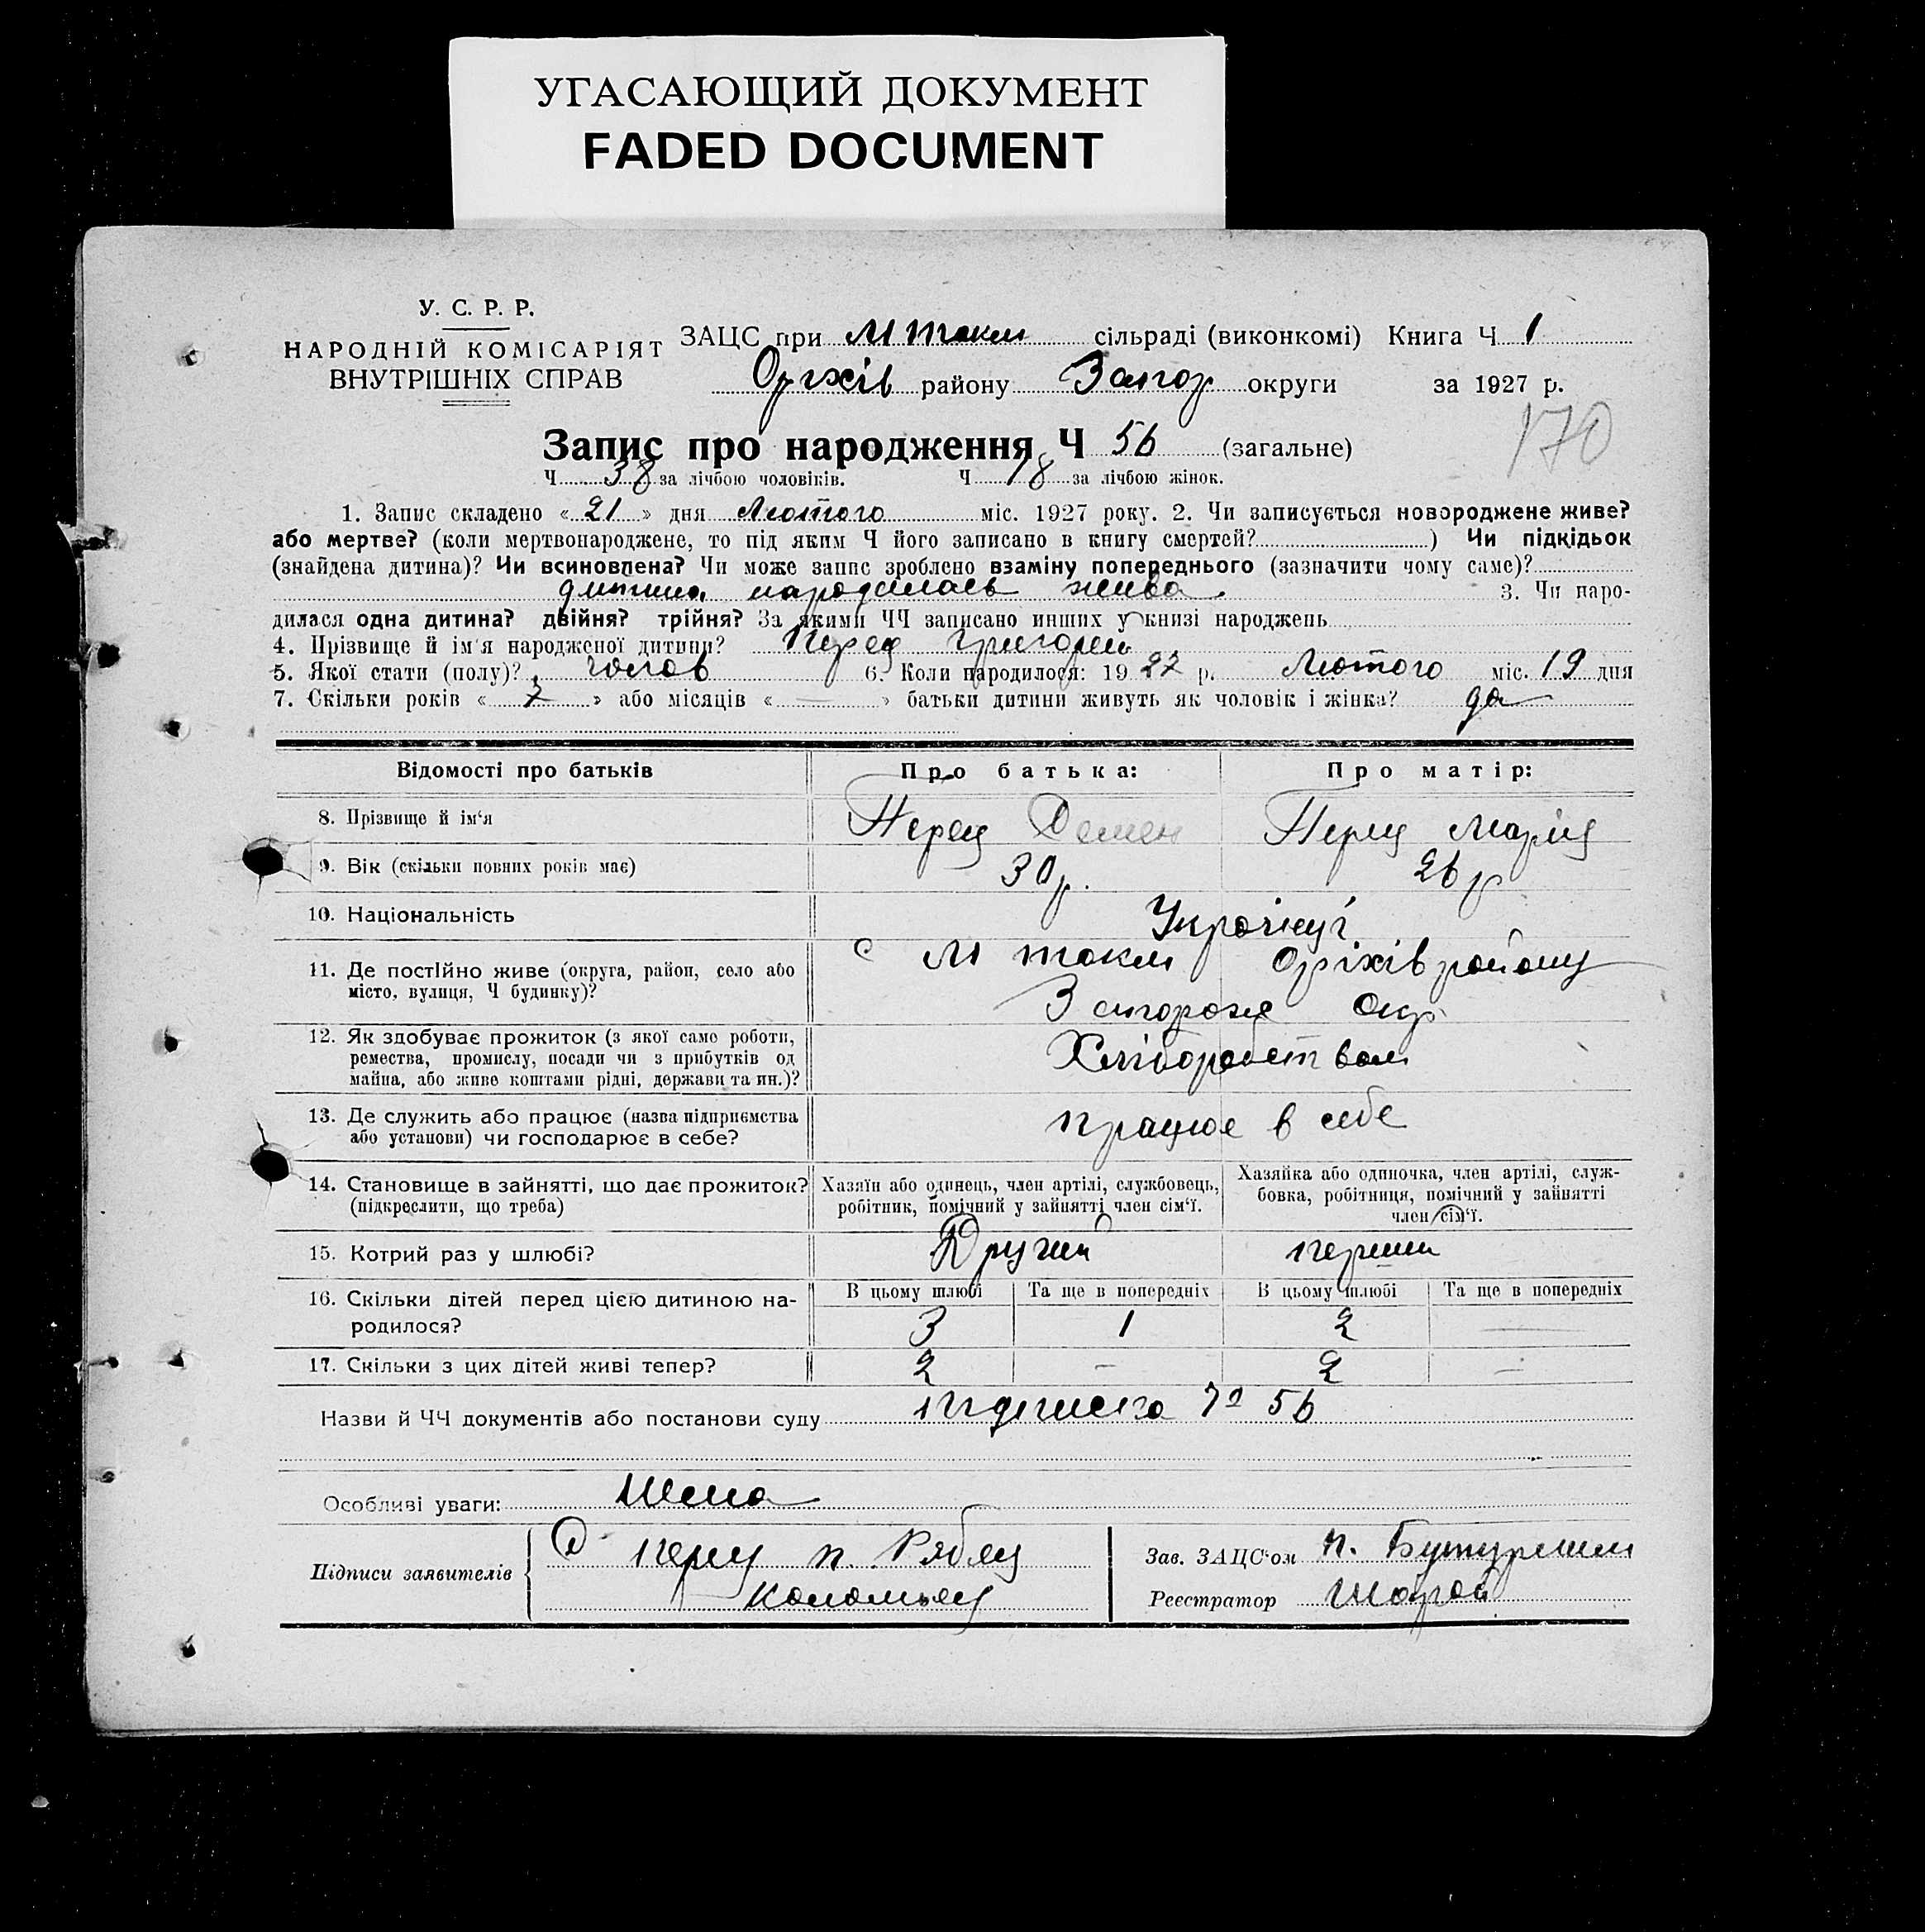 УГАСАЮЩИЙ ДОКУМЕНТ
FADED DOCUMENT
У. С. Р. Р.
НАРОДНІЙ КОМІСАРІЯТ
ВНУТРІШНІХ СПРАВ
ЗАЦС при М Токм сільраді (виконкомі) Книга Ч 1
Оріхів району Запор округи за 1927 р.
170
Запис про народження Ч 56 (загальне)
Ч 38 за лічбою чоловіків. Ч 18 за лічбою жінок.
1. Запис складено « 21 » дня Лютого міс. 1927 року. 2. Чи записується новороджене живе?
або мертве? (коли мертвонароджене, то під яким Ч його записано в книгу смертей? ) Чи підкідьок
(знайдена дитина)? Чи всиновлена? Чи може запис зроблено взаміну попереднього (зазначити чому саме)?
дитина народилась жива 3. Чи наро-
дилася одна дитина? двійня? трійня? За якими ЧЧ записано инших у книзі народжень
4. Прізвище й ім'я народженої дитини? Перец Григорий
5. Якої стати (полу)? чолов 6. Коли народилося: 19 27 р. Лютого міс. 19 дня
7. Скільки років « 7 » або місяців « — » батьки дитини живуть як чоловік і жінка? да
Відомості про батьків Про батька: Про матір:
8. Прізвище й ім'я Перец Семен Перец Марія
9. Вік (скільки повних років має) 30 р. 26 р
10. Національність
11. Де постійно живе (округа, район, село або
місто, вулиця, Ч будинку)?
с М Токм Оріхів району
Запорожс Окр
12. Як здобуває прожиток (з якої само роботи,
ремества, промислу, посади чи з прибутків од
майна, або живе коштами рідні, держави та ин.)?
Хліборобством
13. Де служить або працює (назва підприємства
або установи) чи господарює в себе?
працює в себе
14. Становище в зайнятті, що дає прожиток?
(підкреслити, що треба)
Хазяїн або одинець, член артілі, службовець,
робітник, помічний у зайнятті член сім'ї.
Хазяйка або одиночка, член артілі, служ-
бовка, робітниця, помічний у зайнятті
член сім'ї.
15. Котрий раз у шлюбі? Другий перший
16. Скільки дітей перед цією дитиною на-
родилося?
В цьому шлюбі Та ще в попередніх В цьому шлюбі Та ще в попередніх
3 1 2 —
17. Скільки з цих дітей живі тепер? 2 — 2 —
Назви й ЧЧ документів або постанови суду 56
Особливі уваги:
Підписи заявителів Перец п. Рябец
Коломыец
Зав. ЗАЦС'ом п.
Реєстратор